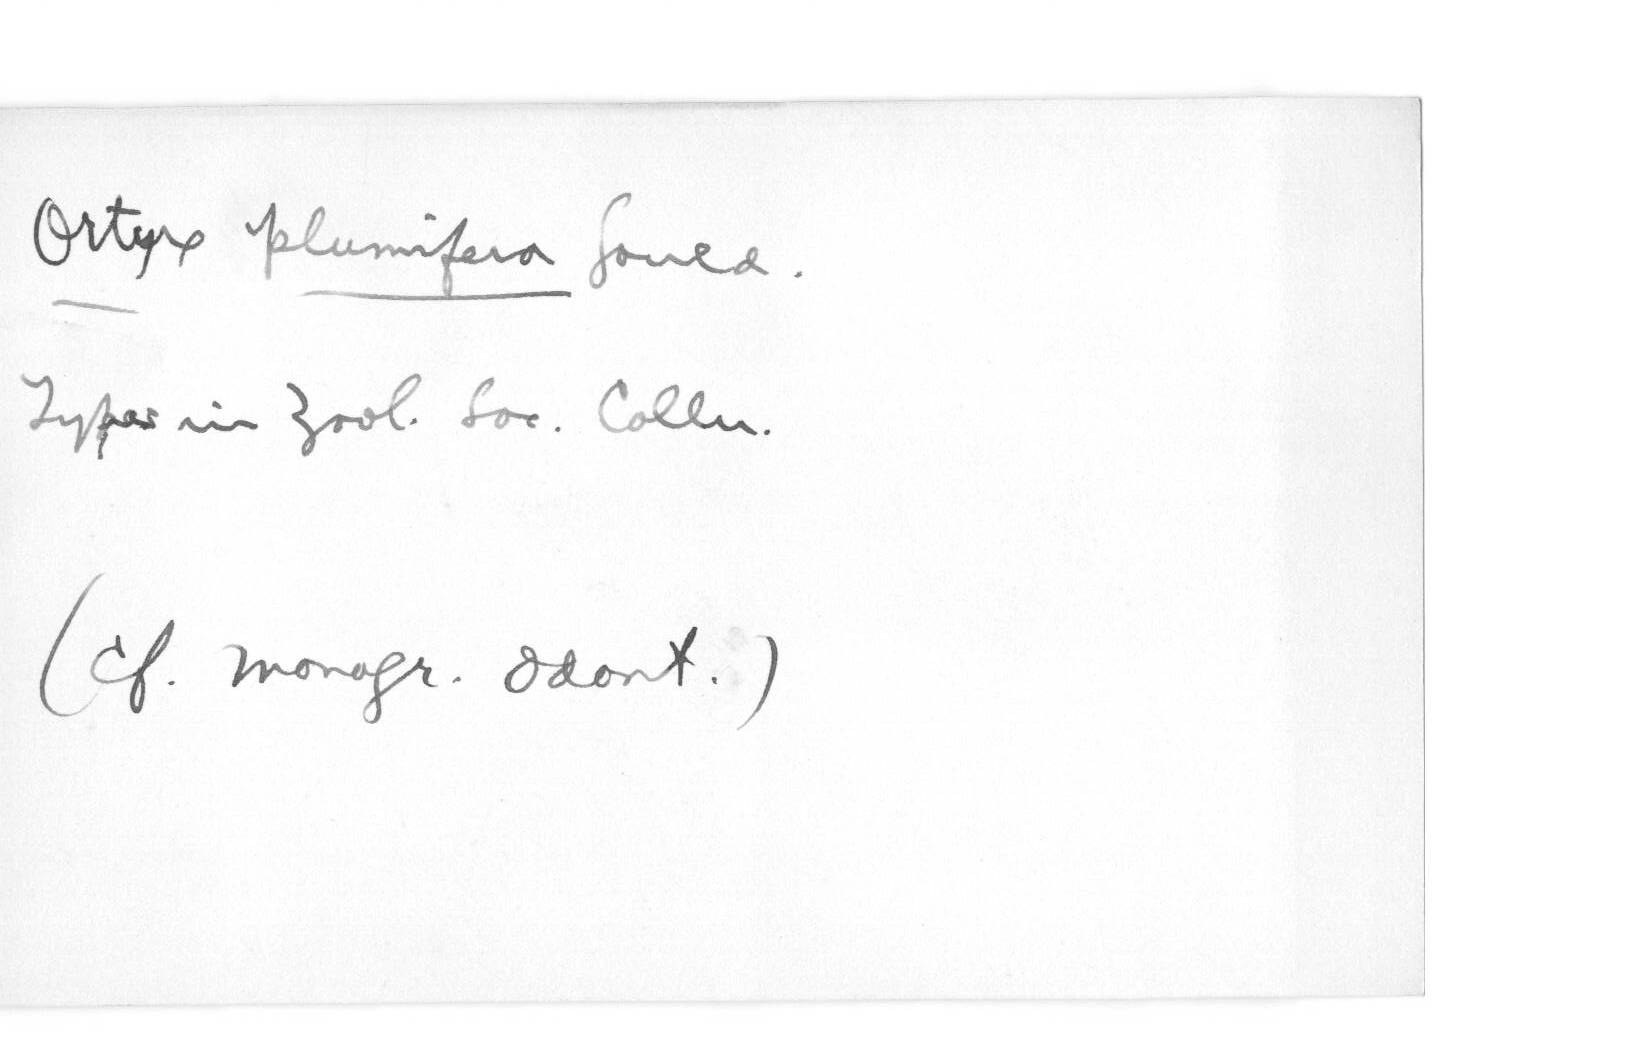 Ortyx plumifera Gould.
Types in Zool. Soc. Colln.
(Cf. Monogr. Odont.)